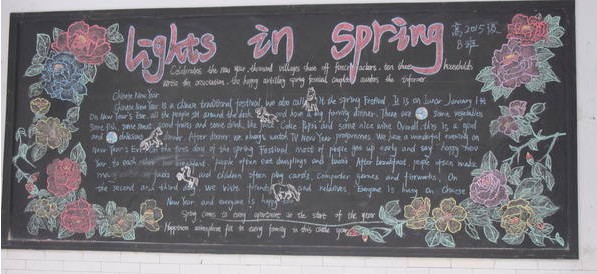 Lights in Spring
高2015级
8班
Celebrates the new year, thousand villages shoe off firecrackers, ten thousand households
across the association, the happy artillery spring festival couplets
Chinese New Year
Chinese New Year is a Chinese traditional festival, we also call it the spring Festival. It is on Lunar January 1st
On New Year's Eve, all the people sit around the desk and have a big family dinner. There are some vegetables
Some fish, some meat, some fruits and some drink, like Coke Pepsi and some nice wine Overall, this is a good
and After dinner we always watch TV New Year programmes. We have a wonderful evening on
New Year's Eve the first day of the spring Festival, most of people get up early and say happy New
Year to each other breakfast, people often eat dumplings and After breakfast, people often make
many and children often play cards, computer games and fireworks. On
the second and third we visit friends and relatives. Everyone is busy on Chinese
New Year and everyone is happy
Spring comes to every at the start of the year
Happiness for to every family in this